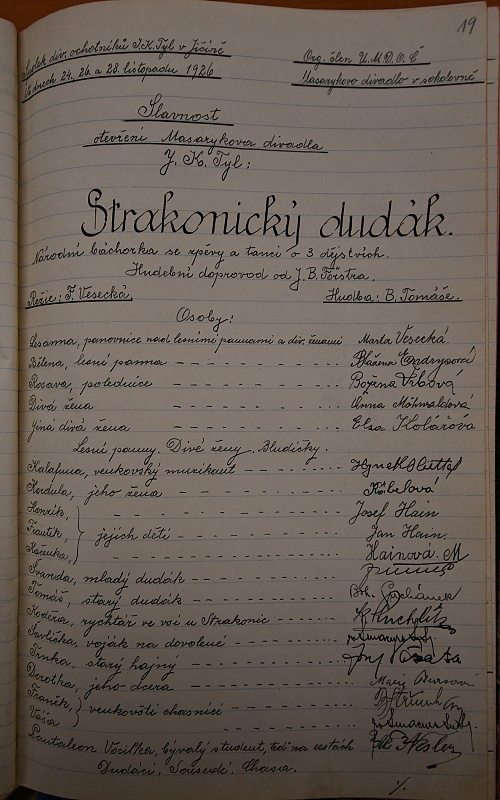 19
Spolek div. ochotníků J.K. Tyl v Jičíně
Ve dnech 24, 26. a 28. listopadu 1926
Org. člen Ú.M.D.O.Č
Masarykovo divadlo v sokolovně
Slavnost
otevření Masarykova divadla
J. K. Tyl:
Strakonický dudák.
Národní báchorka se zpěvy a tanci o 3 dějstvích.
Hudební doprovod od J.B. Förstra.
Režie: F. Vesecká.
Hudba: B. Tomáše.
Osoby:
Lesanna, panovnice nad lesními pannami a div. ženami Marta Vesecká
Bělena, lesní panna Blažena Ondrysová
Rosava, polednice Božena Vrbová
Divá žena Anna Möhwaldová
Jiná divá žena Elsa Kolářová
Lesní panny. Divé ženy. Bludičky.
Kalafuna, venkovský muzikant Hynek
Kordula, jeho žena Köbelová
Honzík, Josef Hain
Frantík, jejich děti Jan Hain
Kačenka, Hainová. M
Švanda, mladý dudák
Tomáš, starý dudák
Kodéra, rychtář ve vsi u Strakonic
Šavlička, voják na dovolené
Trnka, starý hajný
Dorotka, jeho dcera Marie
Franěk, venkovští chasníci
Váša
Pantaleon Vocilka, bývalý student, teď na cestách
Dudáci. Sousedé. Chasa.
./.